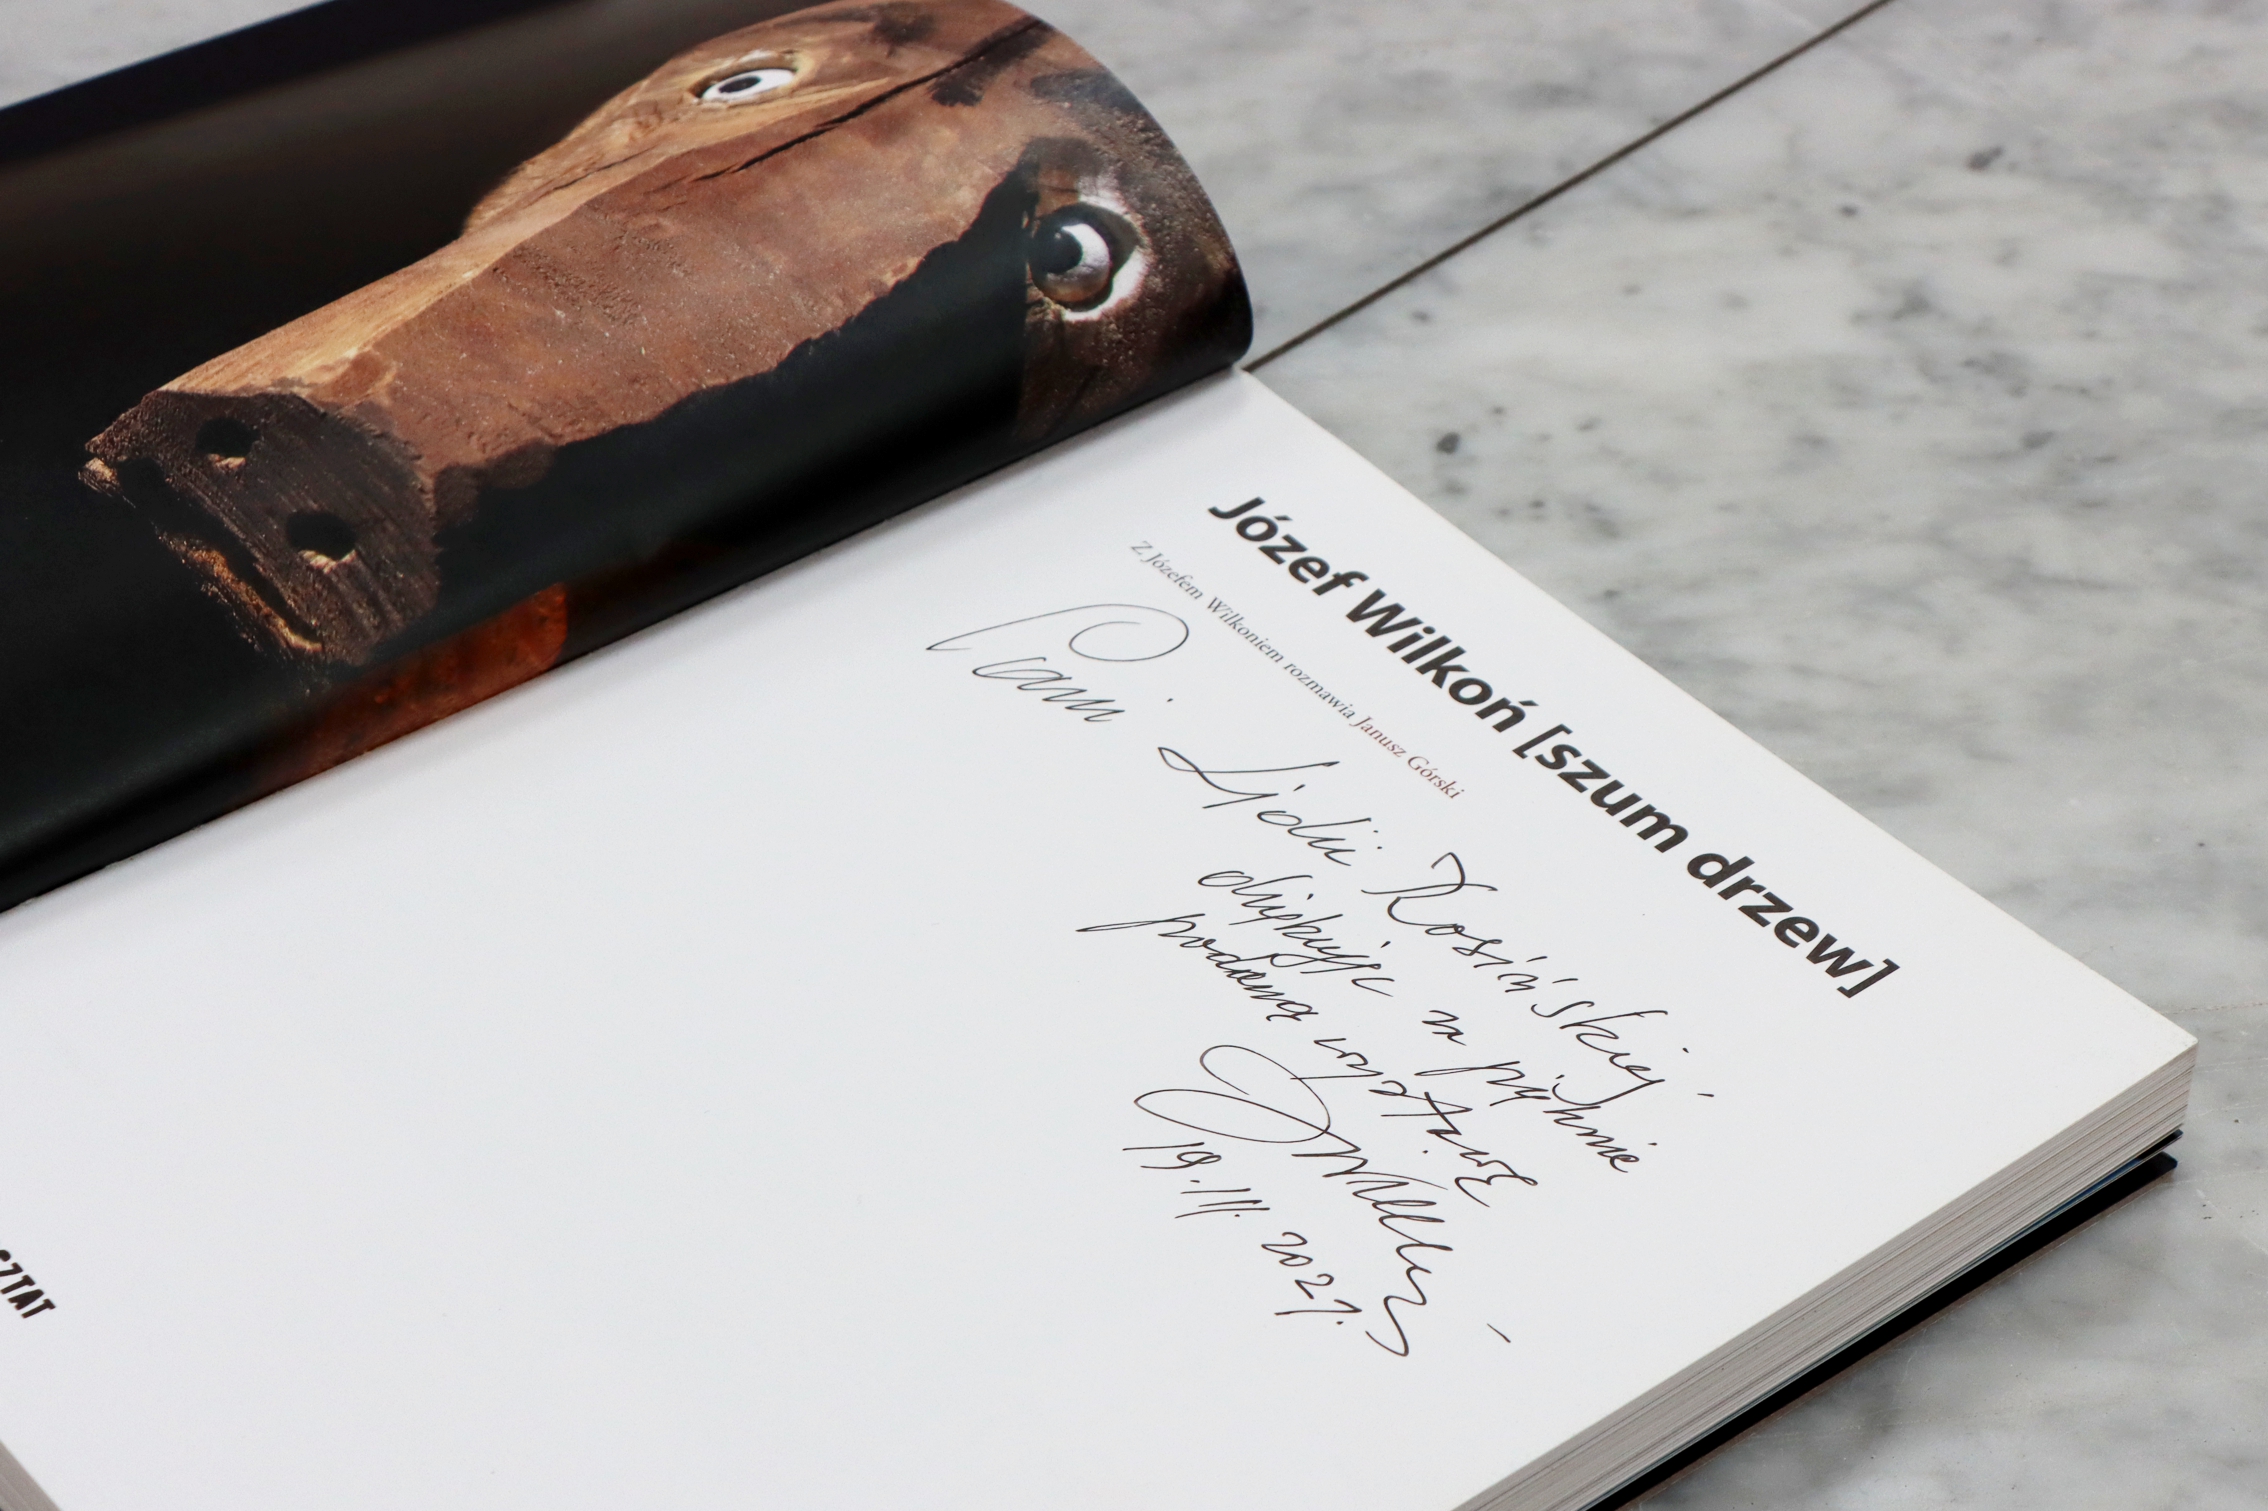 Józef Wilkoń [szum drzew]
Z Józefem Wilkoniem rozmawia Janusz Górski
Pani
Lidii Rosińskiej
dziękując za pięknie
podaną wystawę
JWilkoń
19.III.2021.
SZTAT